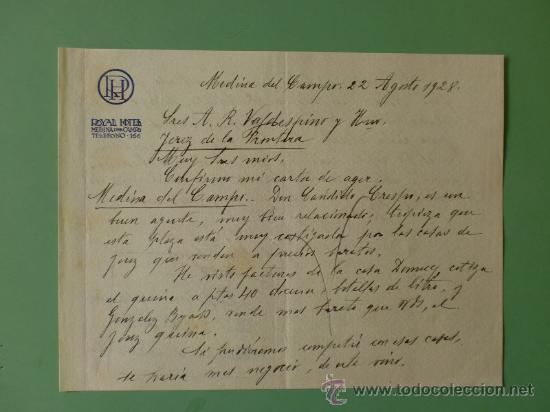 RH
ROYAL HOTEL
MEDINA DEL CAMPO
TELEFONO · 156
Medina del Campo. 22 Agosto 1928.
Sres A. R. Valdespino y Hno
Jerez de la Frontera
Muy Sres mios.
Confirmo mi carta de ayer.
Medina del Campo.. Don Cándido Crespo, es un
buen agente, muy bien relacionado, tropieza que
esta plaza está muy castigada por las casas de
Jerez que venden a precios baratos.
He visto facturas de la casa Domecq cotiza
el quina a ptas 40 docena botellas de litro, y
Gonzalez Byass, vende mas barato que Vds, el
Jerez quina.
Si pudieramos competir con esas casas,
se haria mas negocio, de este vino.
todocoleccion
www.todocoleccion.net